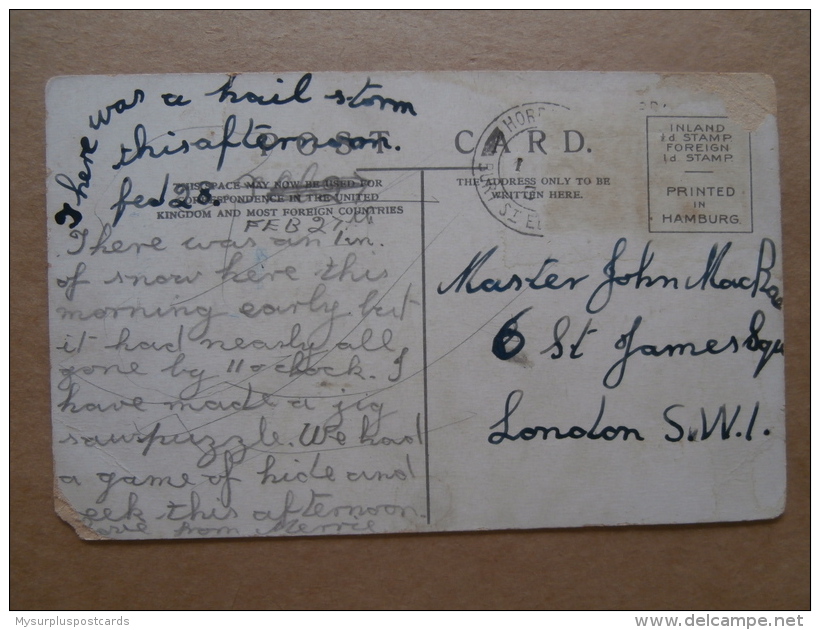 There was a hail storm
this afternoon.
feb 28.
POST CARD.
THIS SPACE MAY NOW BE USED FOR
CORRESPONDENCE IN THE UNITED
KINGDOM AND MOST FOREIGN COUNTRIES
FEB 27th
There was an 1 in.
of snow here this
morning early but
it had nearly all
gone by 11 o clock. I
have made a jig
sawpuzzle. We had
a game of hide and
eek this afternoon.
love from Merrie
THE ADDRESS ONLY TO BE
WRITTEN HERE.
HOR
INLAND
½d. STAMP
FOREIGN
1d. STAMP
PRINTED
IN
HAMBURG.
Master John MacRae
6 St James Squ
London S.W.1.
Mysurpluspostcards
delcampe.net